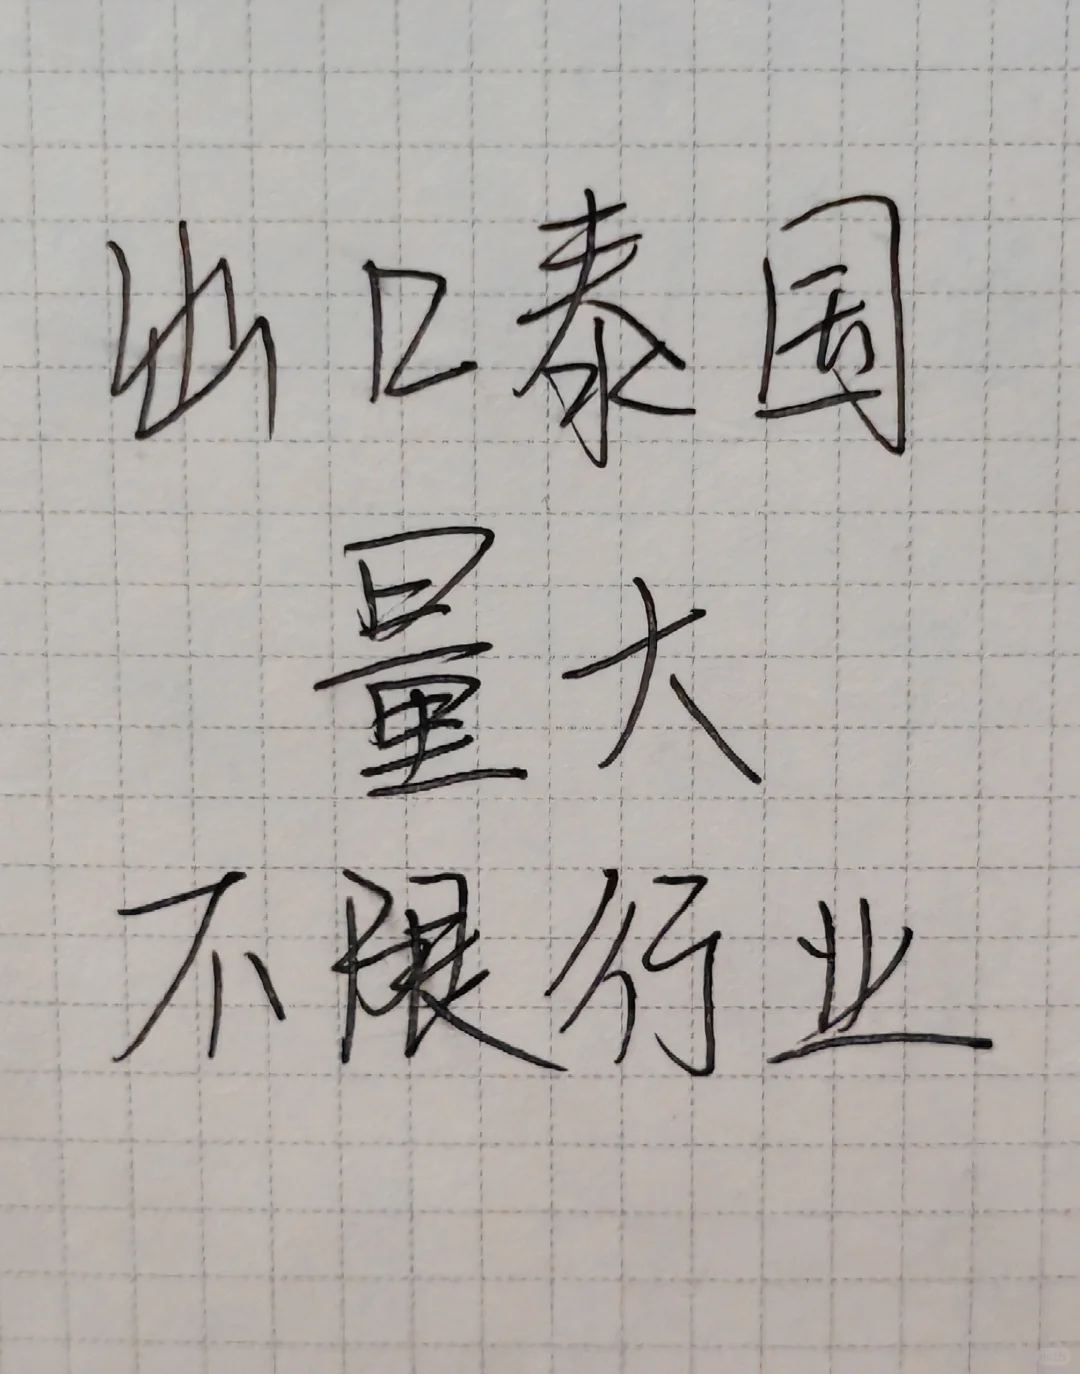 出口泰国
量大
不限行业